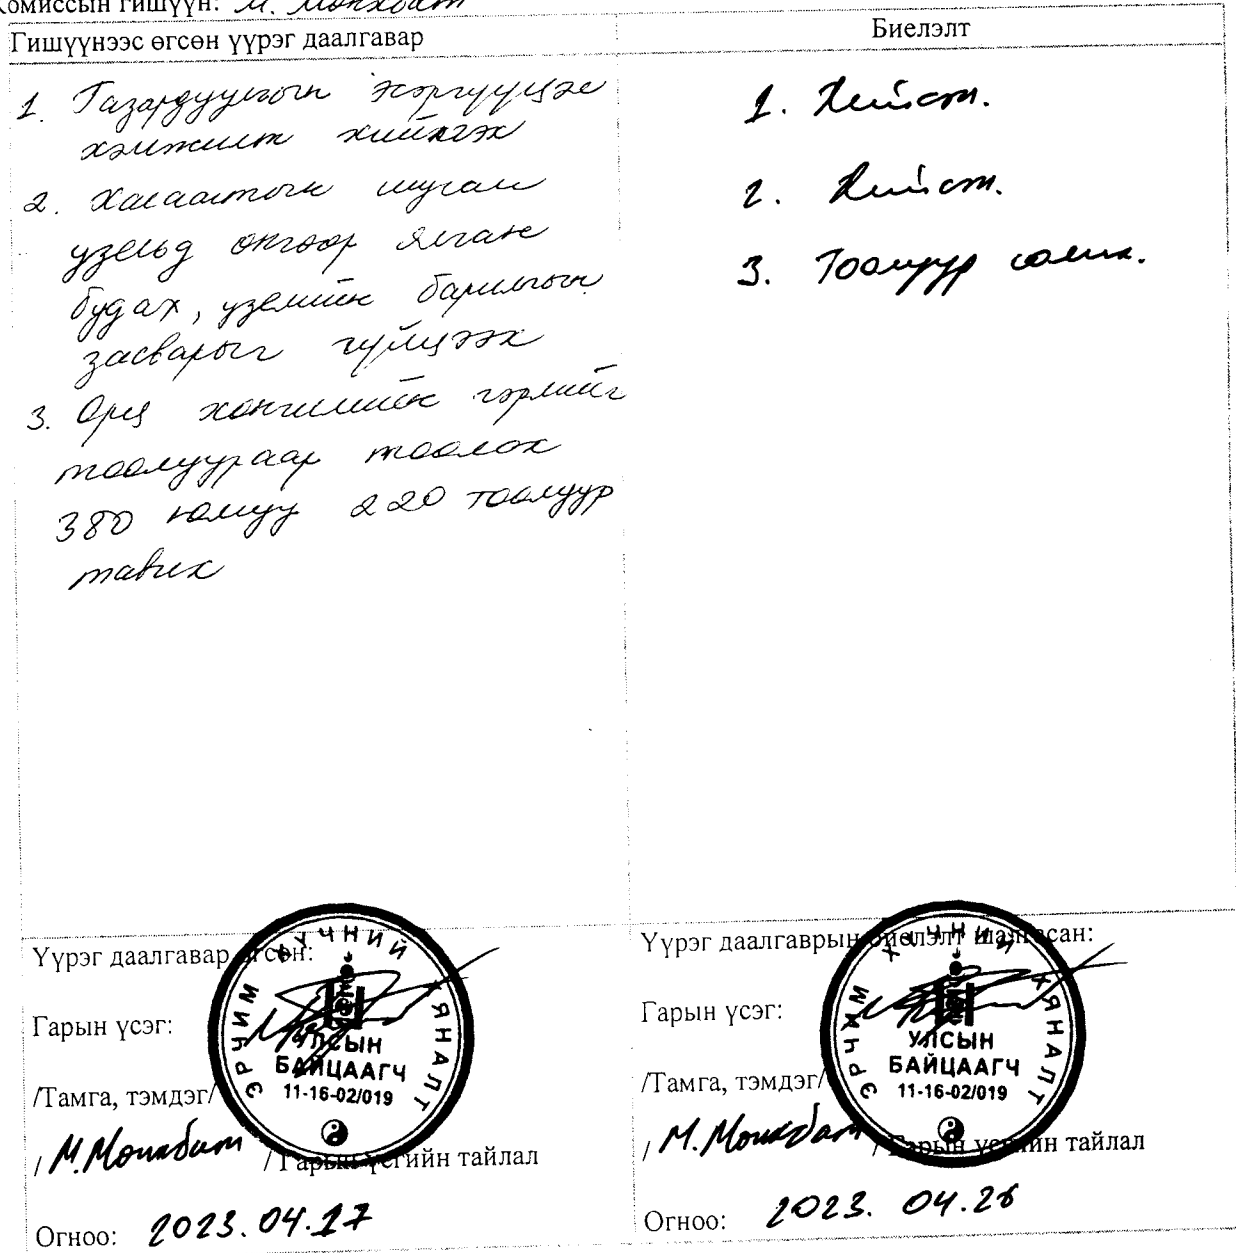 Комиссын гишүүн: М. Мөнхбат
Гишүүнээс өгсөн үүрэг даалгавар
Биелэлт
1. Газардуулгын эсэргүүцэл
хэмжилт хийлгэх
2. Халаалтын шугам
узельд өнгөөр ялган
будах, узелийн барилгын
засварыг гүйцээх
3. Орц хонгилийн гэрлийг
тоолуураар тоолох
380 юмуу 220 тоолуур
тавих
1. Хийсэн.
2. Хийсэн.
3. Тоолуур
Үүрэг даалгавар өгсөн:
Гарын үсэг:
/Тамга, тэмдэг/
/ М.Мөнхбат / Гарын үсгийн тайлал
Огноо: 2023.04.17
ЭРЧИМ ХҮЧНИЙ ХЯНАЛТ
УЛСЫН
БАЙЦААГЧ
11-16-02/019
Үүрэг даалгаврын биелэлт шалгасан:
Гарын үсэг:
/Тамга, тэмдэг/
/ М.Мөнхбат / Гарын үсгийн тайлал
Огноо: 2023. 04.26
ЭРЧИМ ХҮЧНИЙ ХЯНАЛТ
УЛСЫН
БАЙЦААГЧ
11-16-02/019